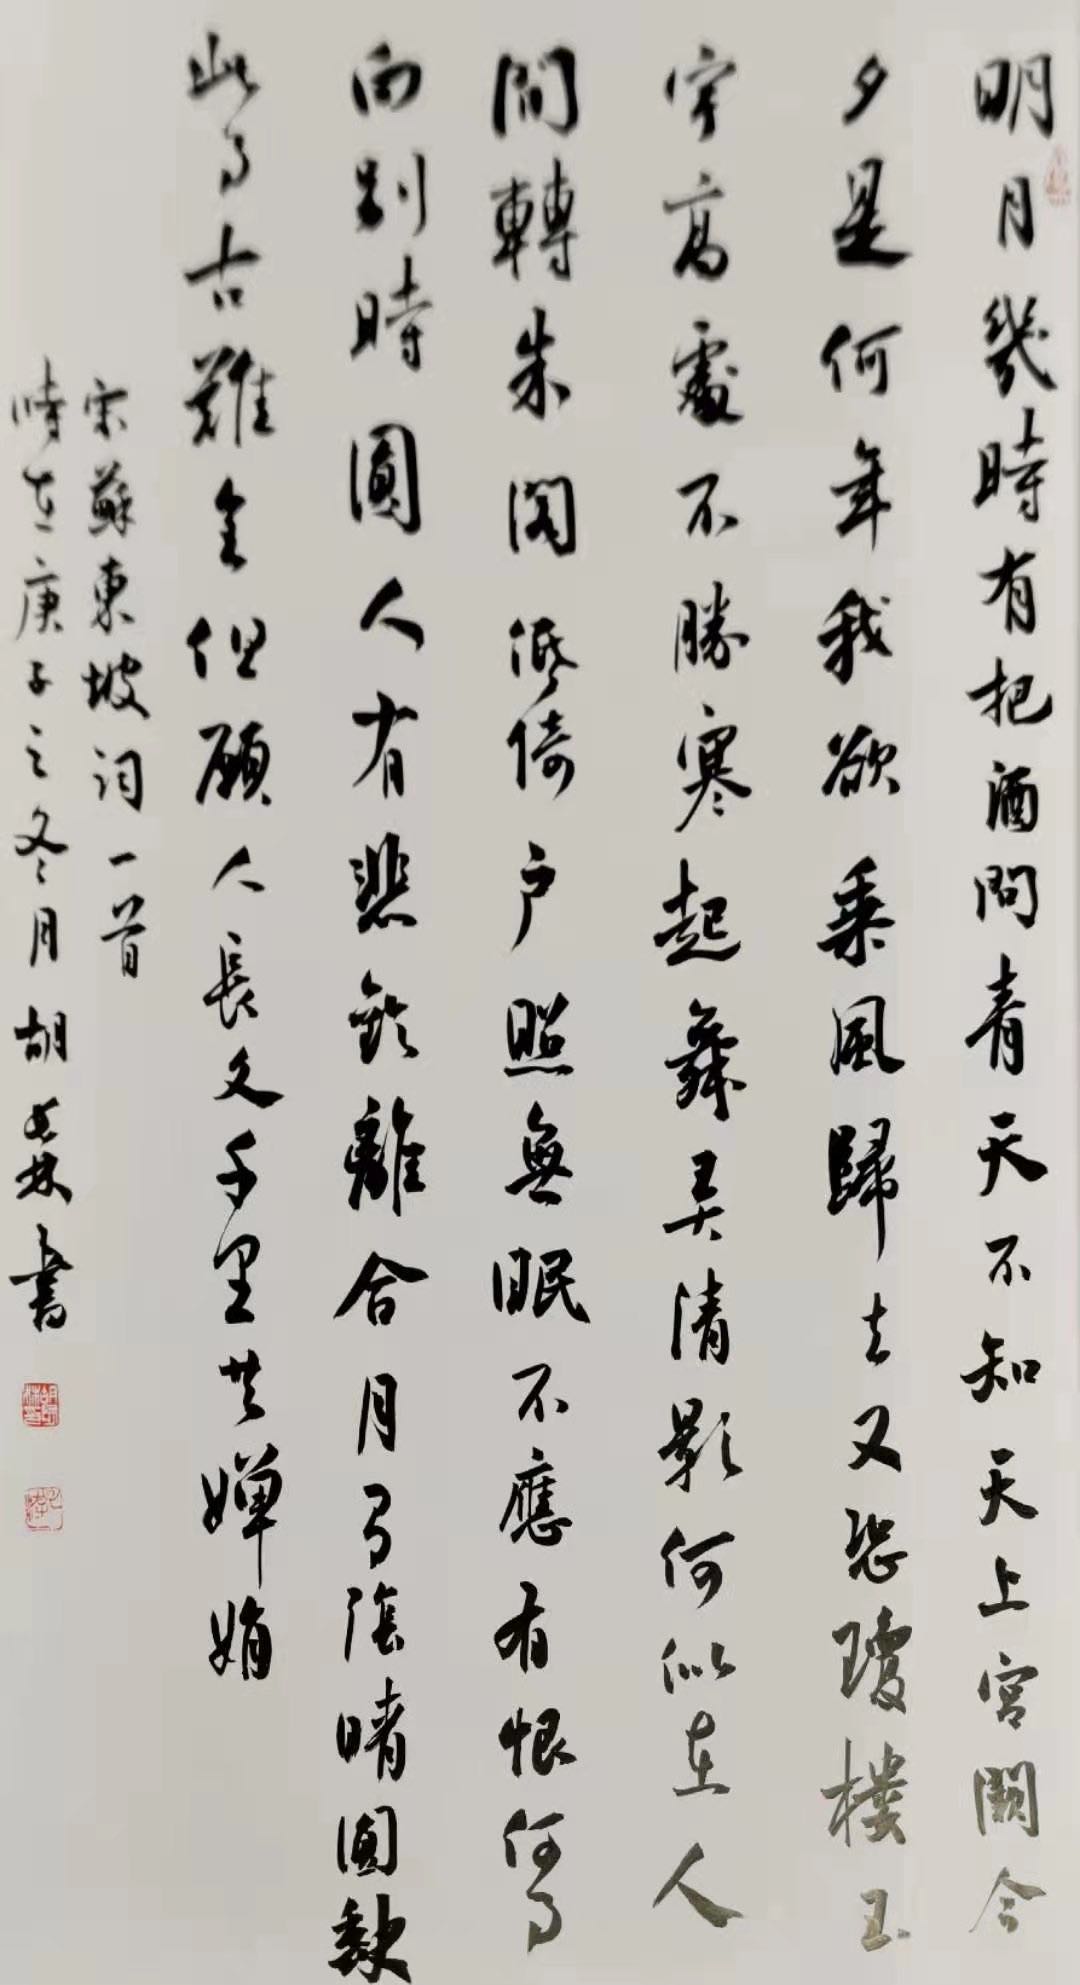 明月幾時有把酒問青天不知天上宮闕今
夕是何年我欲乘風歸去又恐瓊樓玉
宇高處不勝寒起舞弄清影何似在人
間轉朱閣低倚户照無眠不應有恨何事
向別時圓人有悲歡離合月有陰晴圓缺
此事古難全但願人長久千里共嬋娟
宋蘇東坡詞一首
時在庚子之冬月胡森書